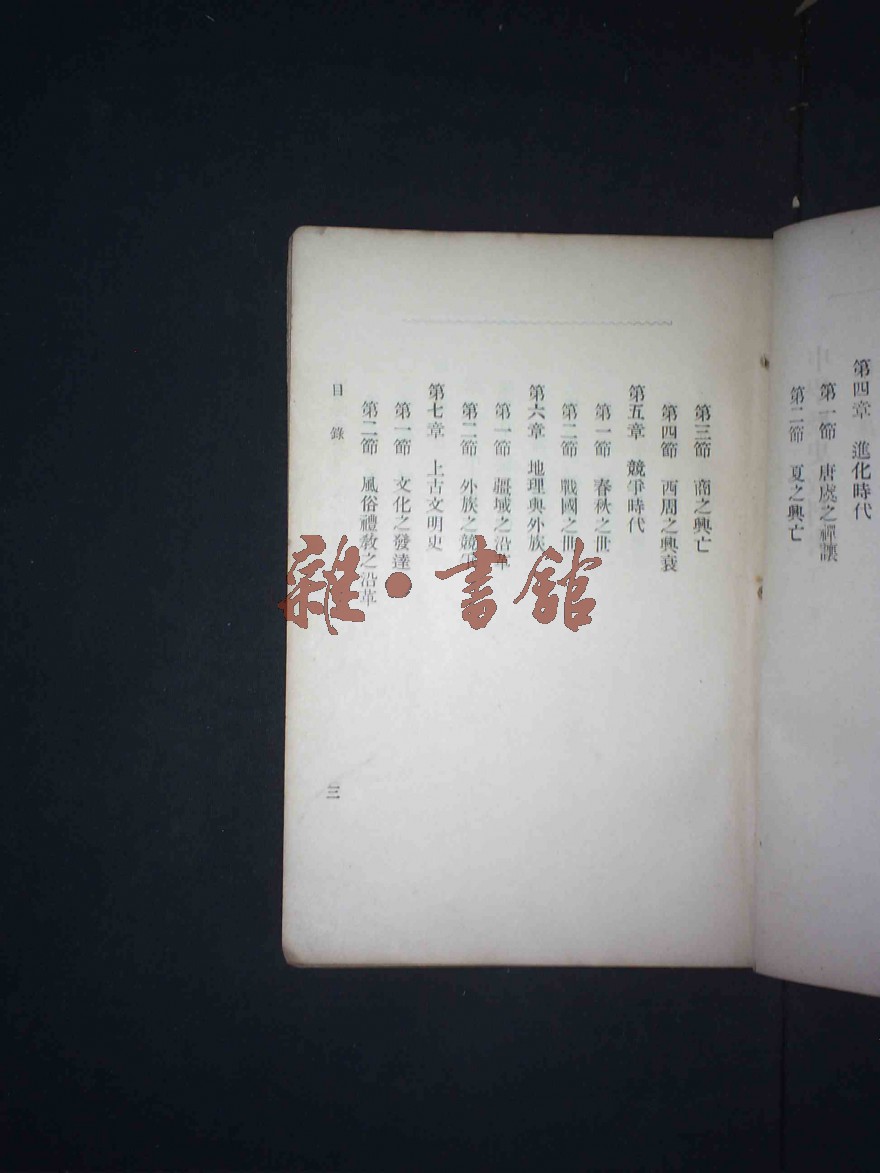 第四章　進化時代
第一節　唐虞之禪讓
第二節　夏之興亡
第三節　商之興亡
第四節　西周之興衰
第五章　競爭時代
第一節　春秋之世
第二節　戰國之世
第六章　地理與外族
第一節　疆域之沿革
第二節　外族之競爭
第七章　上古文明史
第一節　文化之發達
第二節　風俗禮教之沿革
目錄
三
雜·書館